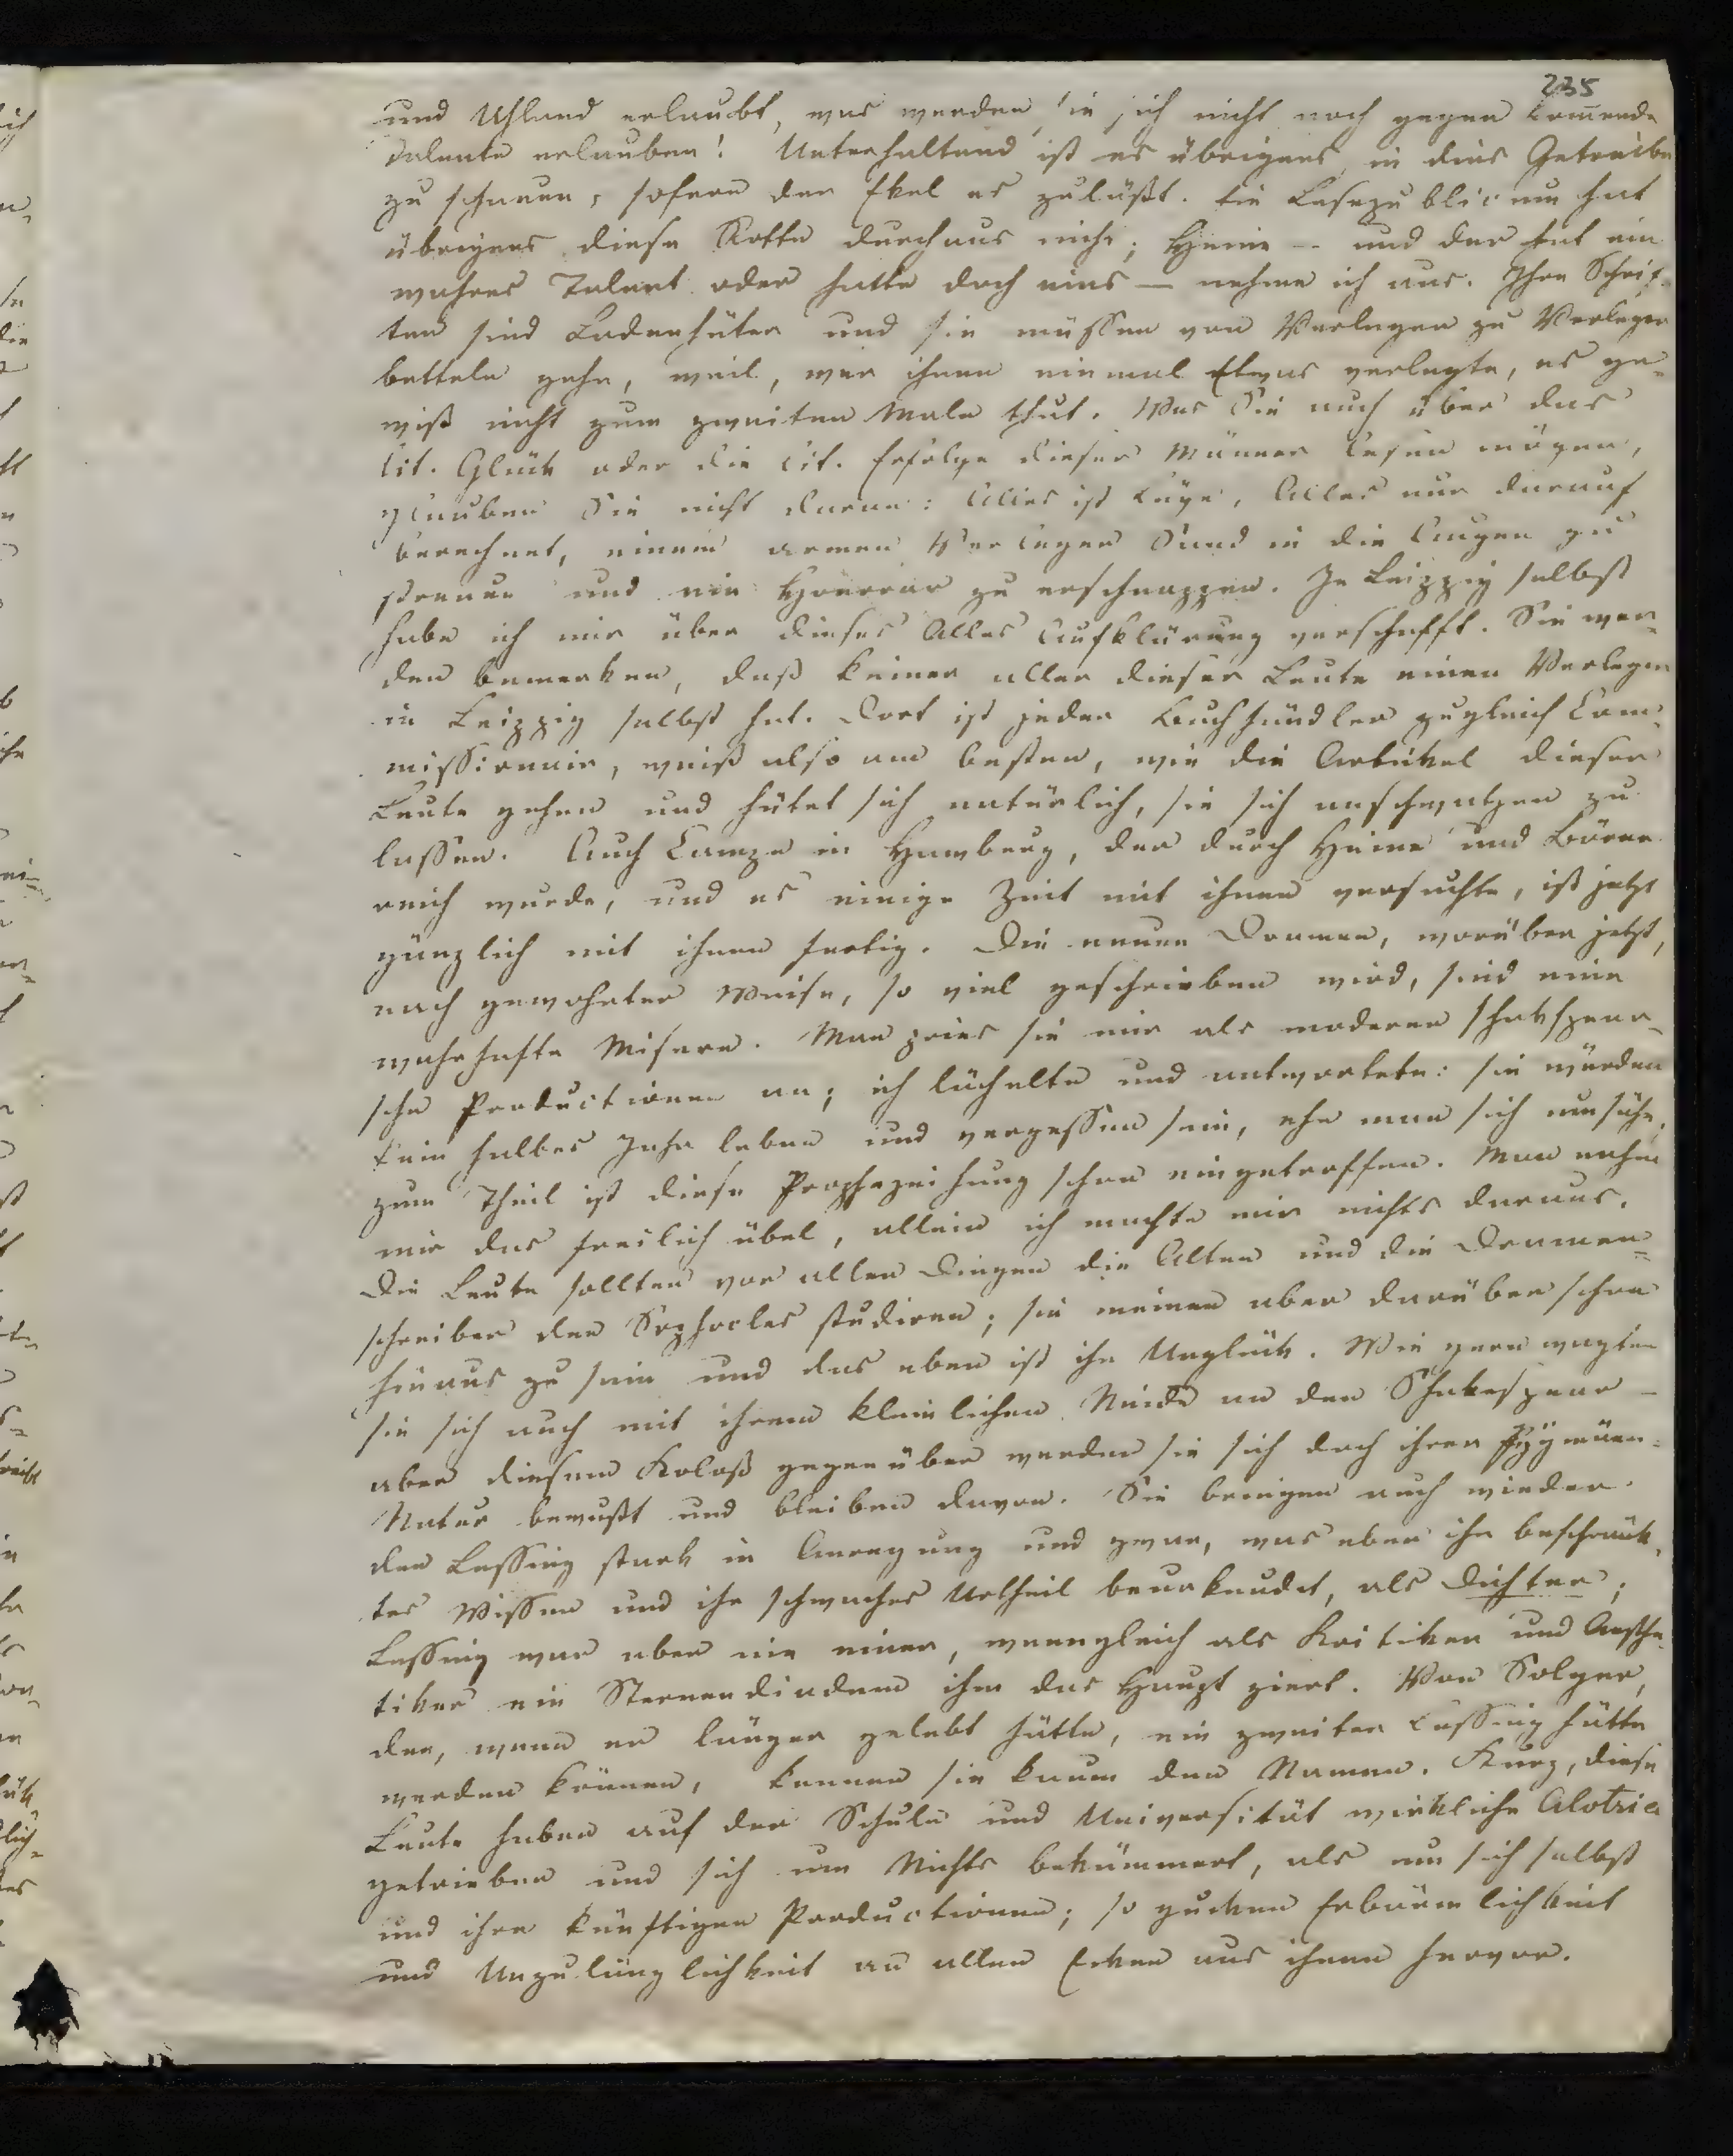 235
und Uhland erlaubt, was werden sie sich nicht noch gegen kom̅ende
Talente erlauben! Unterhaltend ist es übrigens, in dies Getreibe
zu schauen, sofern der Ekel es zuläßt. Ein Lesepublicum hat
übrigens diese Rotte durchaus nicht; Heine – und der hat ein
wahres Talent oder hatte doch eins – nehme ich aus. Ihre Schrif-
ten sind Ladenhüter und sie müssen von Verleger zu Verleger
betteln gehn, weil, wer ihnen einmal Etwas verlegte, es ge-
wiß nicht zum zweiten Male thut. Was Sie auch über das
lit. Glück oder die lit. Erfolge dieser Männer lesen mögen,
glauben Sie nicht daran: Alles ist Lüge, Alles nur darauf
berechnet, einem armen Verleger Sand in die Augen zu
streuen und ein Honorar zu erschnappen. In Leipzig selbst
habe ich mir über dieses Alles Aufklärung verschafft. Sie wer-
den bemerken, daß keiner aller dieser Leute einen Verleger
in Leipzig selbst hat. Dort ist jeder Buchhändler zugleich Com-
missionair, weiß also am besten, wie die Artikel dieser
Leute gehen und hütet sich natürlich, sie sich anschwatzen zu
lassen. Auch Campe in Hamburg, der durch Heine und Börne
reich wurde, und es einige Zeit mit ihnen versuchte, ist jetzt
gänzlich mit ihnen fertig. Die neuen Dramen, worüber jetzt,
nach gewohnter Weise, so viel geschrieben wird, sind eine
wahrhafte Misere. Man pries sie mir als moderne Shakspear-
sche Productionen an; ich lächelte und antwortete: sie würden
kein halbes Jahr leben und vergessen sein, ehe man sich umsähe,
zum Theil ist diese Prophezeihung schon eingetroffen. Man nahm
mir das freilich übel, allein ich machte mir nichts daraus.
Die Leute sollten vor allen Dingen die Alten und die Dramen-
schreiber den Sophocles studiren; sie meinen aber darüber schon
hinaus zu sein und das eben ist ihr Unglück. Wie gern wagten
sie sich auch mit ihrem kleinlichen Neide an den Shakespear –
aber diesem Koloß gegenüber werden sie sich doch ihrer Pygmäen-
Natur bewußt und bleiben davon. Sie bringen auch wieder
den Lessing stark in Anregung und zwar, was eben ihr beschränk-
tes Wissen und ihr schwaches Urtheil beurkundet, als Dichter;
Lessing war aber nie einer, wenngleich als Kritiker und Aesthe-
tiker ein Sternendiadem ihm das Haupt ziert. Von Solger,
der, wenn er länger gelebt hätte, ein zweiter Lessing hätte
werden können, kennen sie kaum den Namen. Kurz, diese
Leute haben auf der Schule und Universität wirkliche Alotria
getrieben und sich um Nichts bekümmert, als um sich selbst
und ihre künftigen Productionen; so gucken Erbärmlichkeit
und Unzulänglichkeit an allen Ecken aus ihnen hervor.